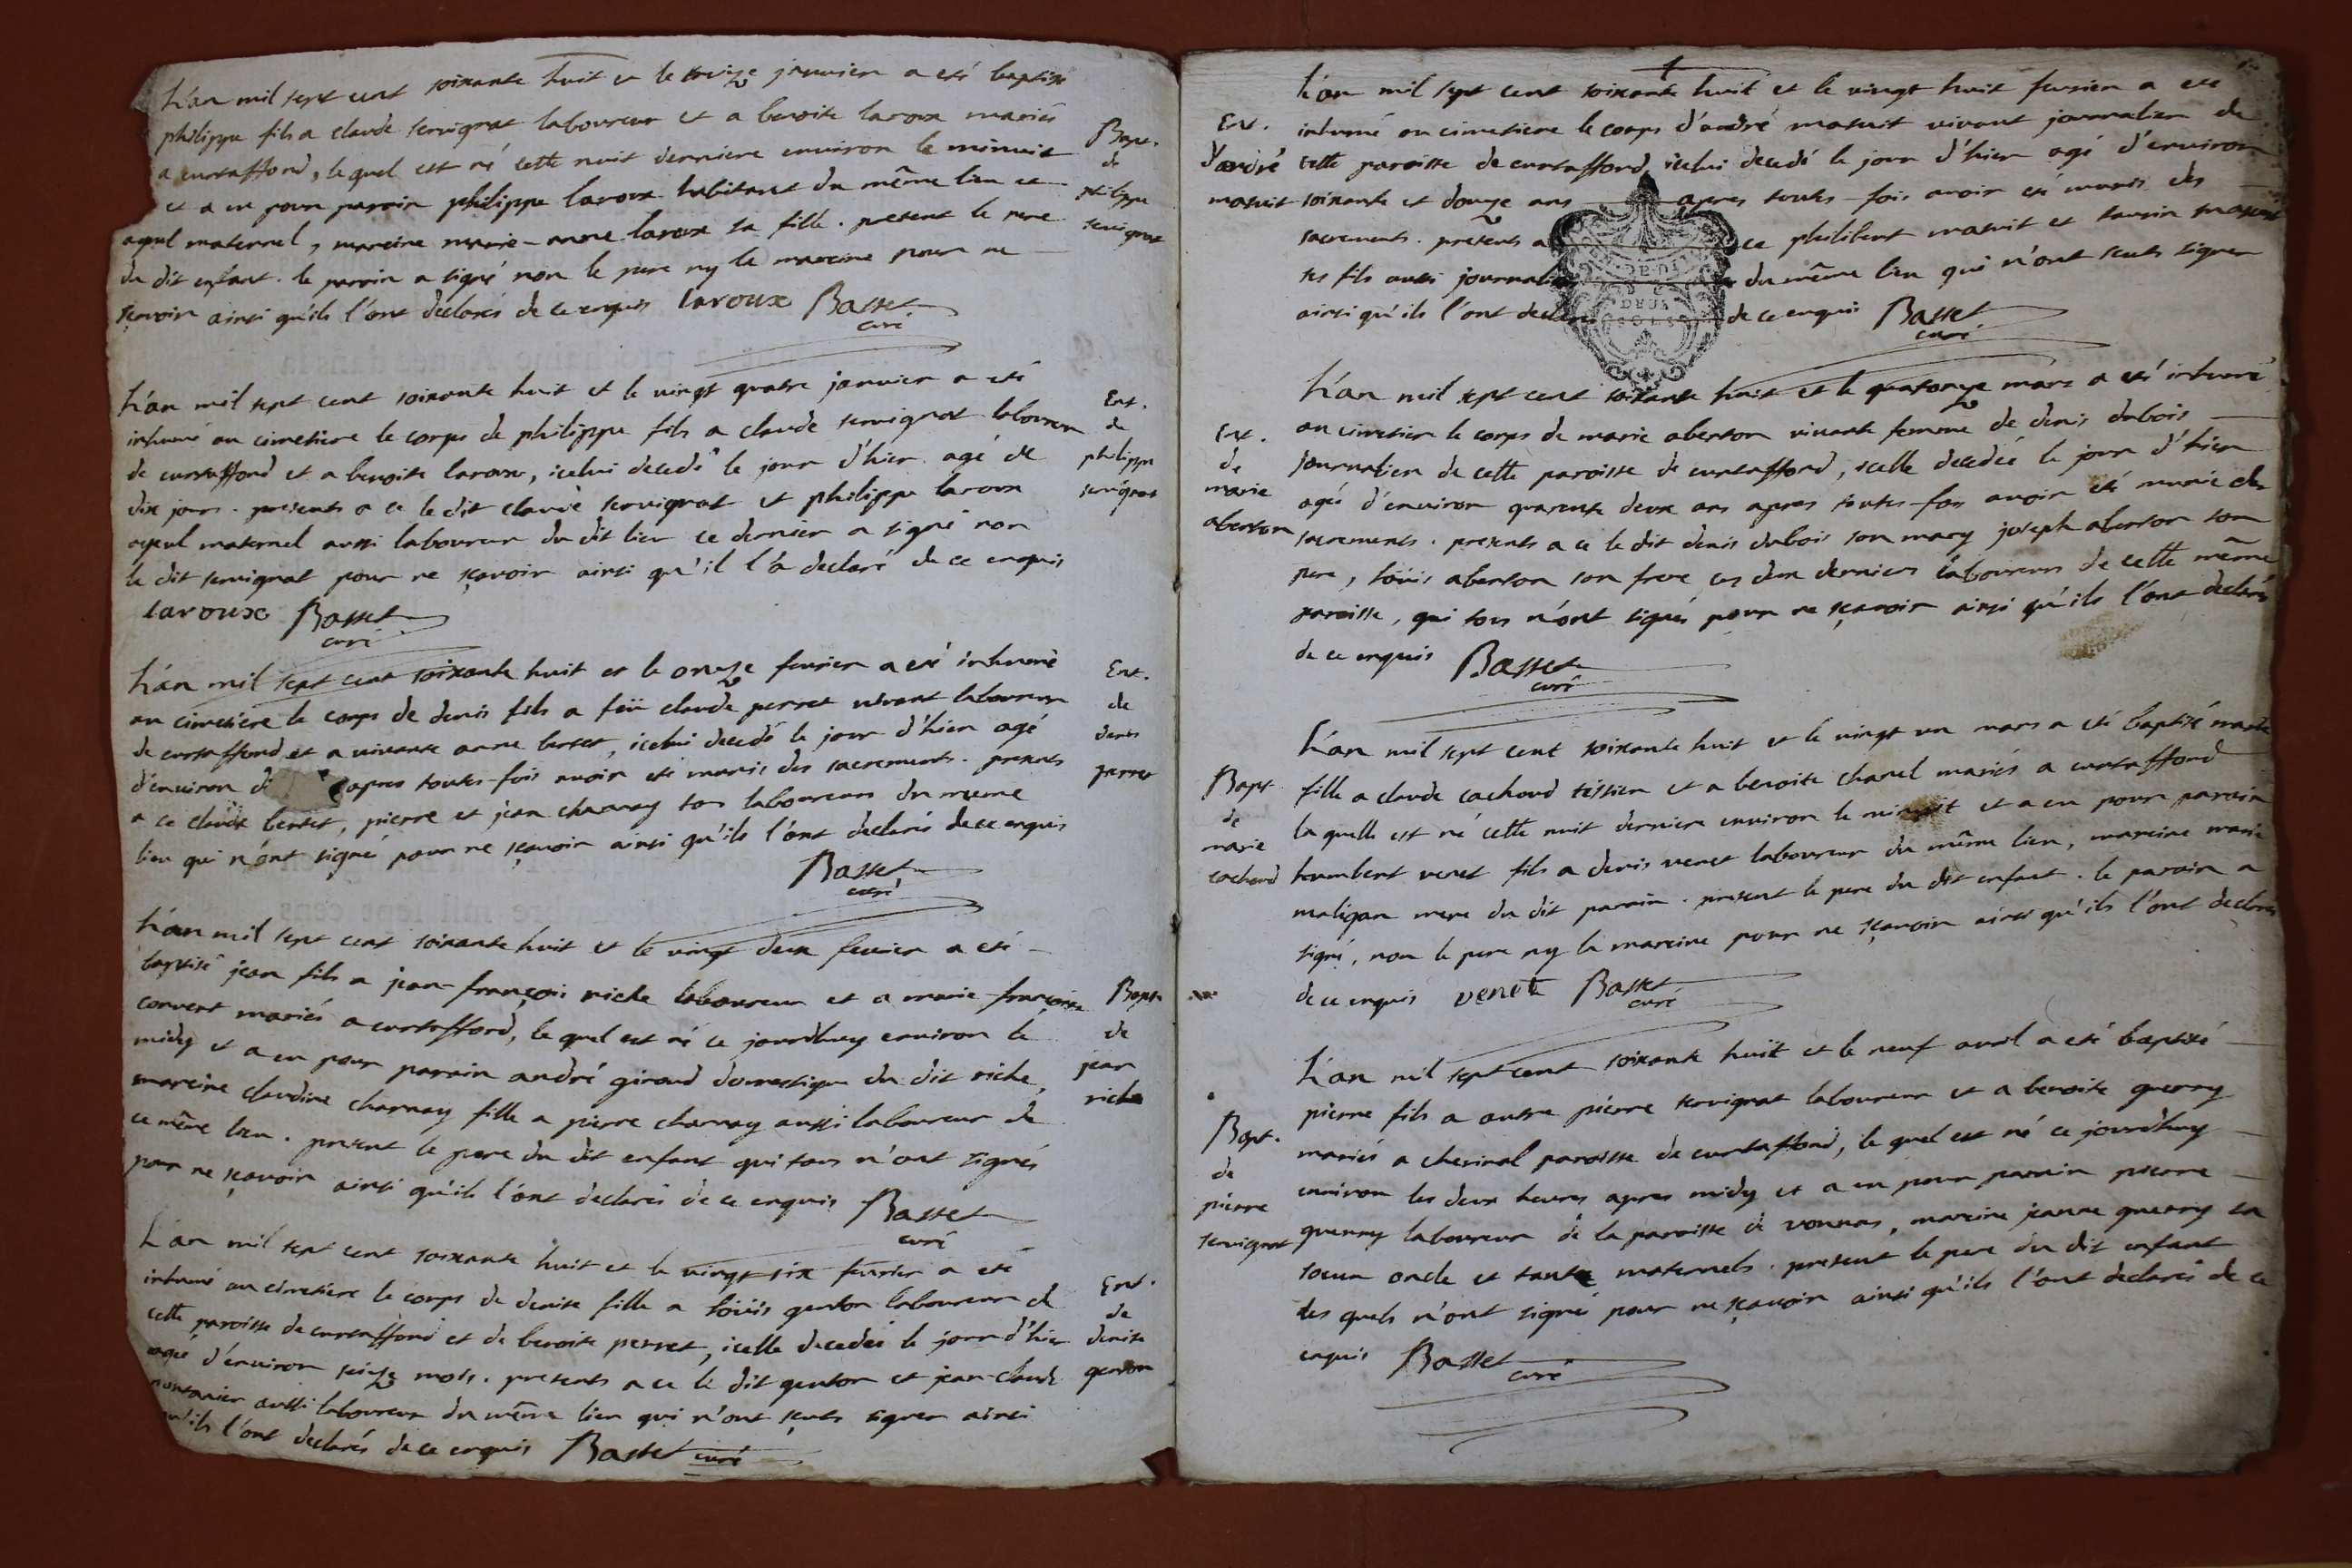 L'an mil sept cent soixante huit et le treize janvier a eté baptisé
philippe fils a claude servignat laboureur et a benoite laroux mariés
a curtaffond, le quel est né cette nuit derniere environ le minuit
et a eu pour parain philippe laroux habitant du même lieu et
ayeul maternel, mareine marie-anne laroux sa fille. present le pere
du dit enfant. le parain a signé non le pere ny la mareine pour ne
sçavoir ainsi qu'ils l'ont declarés de ce enquis laroux Basset
curé
Bapt.
de
philippe
servignat
L'an mil sept cent soixante huit et le vingt quatre janvier a eté
inhumé au cimetiere le corps de philippe fils a claude servignat laboureur
de curtaffond et a benoite laroux, icelui decedé le jour d'hier agé de
dix jours. presents a ce le dit claude servignat et philippe laroux
ayeul maternel aussi laboureur du dit lieu ce dernier a signé non
le dit servignat pour ne sçavoir ainsi qu'il l'a declaré de ce enquis
laroux Basset
curé
Ent.
de
philippe
servignat
L'an mil sept cent soixante huit et le onze fevrier a eté inhumé
au cimetiere le corps de denis fils a feü claude perret vivant laboureur
de curtaffond et a vivante anne bertet, icelui decedé le jour d'hier agé
d'environ apres toutes-fois avoir eté munis des sacrements. presents
a ce claude bertet, pierre et jean charnay tous laboureurs du meme
lieu qui n'ont signé pour ne sçavoir ainsi qu'ils l'ont declarés de ce enquis
Basset
curé
Ent.
de
denis
perret
L'an mil sept cent soixante huit et le vingt deux fevrier a eté
baptisé jean fils a jean-françois riche laboureur et a marie-françoise
convert mariés a curtaffond, le quel est né ce jourdhuy environ le
midy et a eu pour parain andré giraud domestique du dit riche,
mareine claudine charnay fille a pierre charnay aussi laboureur de
ce même lieu. present le pere du dit enfant qui tous n'ont signés
pour ne sçavoir ainsi qu'ils l'ont declarés de ce enquis Basset
curé
Bapt.
de
jean
riche
L'an mil sept cent soixante huit et le vingt-six fevrier a eté
inhumé au cimetiere le corps de denise fille a loüis genton laboureur de
cette paroisse de curtaffond et de benoite perret, icelle decedée le jour d'hier
agée d'environ seize mois. presents a ce le dit genton et jean-claude
aussi laboureur du même lieu qui n'ont sçuts signer ainsi
qu'ils l'ont declarés de ce enquis Basset curé
Ent.
de
denise
genton
L'an mil sept cent soixante huit et le vingt huit fevrier a eté
inhumé au cimetiere le corps d'andré matuit vivant journalier de
cette paroisse de curtaffond, icelui decedé le jour d'hier agé d'environ
soixante et douze ans apres toutes-fois avoir eté munis des
sacrements. presents a ce philibert matuit et matuit
ses fils aussi journaliers du même lieu qui n'ont sçuts signer
ainsi qu'ils l'ont declarés de ce enquis Basset
curé
Ent.
d'andré
matuit
L'an mil sept cent soixante huit et le quatorze mars a eté inhumé
au cimetier le corps de marie aberton vivante femme de denis dubois
journalier de cette paroisse de curtaffond, icelle decedée le jour d'hier
agée d'environ quarente deux ans apres toutes-fois avoir eté munie des
sacrements. presents a ce le dit denis dubois son mary joseph aberton son
pere, loüis aberton son frere ces deux derniers laboureurs de cette même
paroisse, qui tous n'ont signés pour ne sçavoir ainsi qu'ils l'ont declarés
de ce enquis Basset
curé
Ent.
de
marie
aberton
L'an mil sept cent soixante huit et le vingt un mars a eté baptisé marie
fille a claude cochand tissier et a benoite chanel mariés a curtaffond
la quelle est né cette nuit derniere environ le minuit et a eu pour parain
humbert venet fils a denis venet laboureur du même lieu, mareine marie
maligan mere du dit parain. present le pere du dit enfant. le parain a
signé, non le pere ny la mareine pour ne sçavoir ainsi qu'ils l'ont declarés
de ce enquis venet Basset
curé
Bapt.
de
marie
cochand
L'an mil sept cent soixante huit et le neuf avril a eté baptisé
pierre fils a autre pierre servignat laboureur et a benoite guerry
mariés a cherinal paroisse de curtaffond, le quel est né ce jourdhuy
environ les deux heures apres midy et a eu pour parain pierre
guerry laboureur de la paroisse de vonnas, mareine jeanne guerry sa
soeur oncle et tante maternels. present le pere du dit enfant
les quels n'ont signé pour ne sçavoir ainsi qu'ils l'ont declarés de ce
enquis Basset
curé
Bapt.
de
pierre
servignat